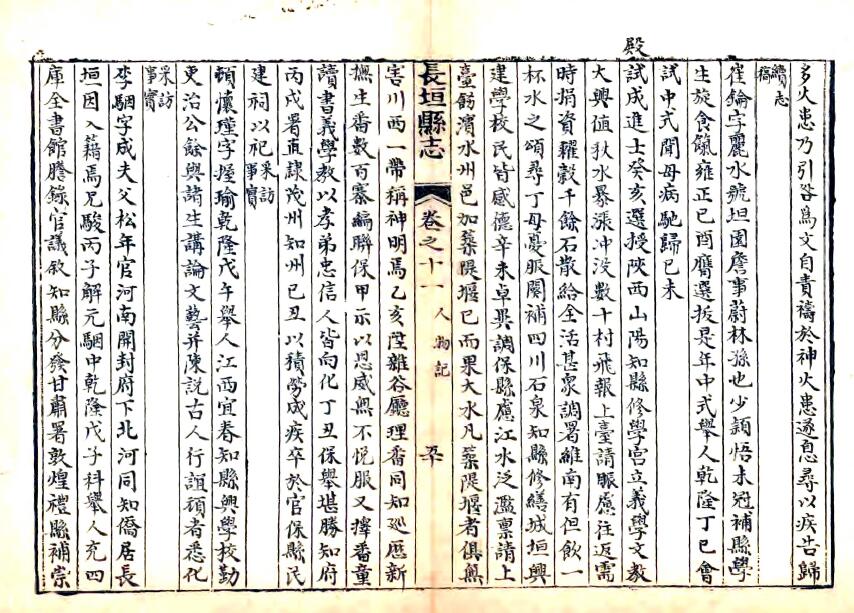 多火患乃引咎爲文自責禱於神火患遂息尋以疾告歸
續志
稿
崔錀字麗水號坦園詹事蔚林孫也少穎悟未冠補縣學
生旋食餼雍正己酉膺選拔是年中式舉人乾隆丁巳會
試中式聞母病馳歸己未
殿
試成進士癸亥選授陝西山陽知縣修學宮立義學文敎
大興值狄水暴漲冲没數十村飛報上臺請賑慮往返需
時捐資糴穀千餘石散給全活甚衆調署雒南有但飲一
杯水之頌尋丁母憂服闋補四川石泉知縣修繕城垣興
建學校民皆感德辛未卓異調保縣慮江水泛濫禀請上
臺飭濱水州邑加築隄堰已而果大水凡築隄堰者俱無
長垣縣志
卷之十一
人物記
害川西一帶稱神明焉乙亥陞雜谷廳理番同知廵歷新
撫生番數百寨編聯保甲示以恩威無不悅服又擇番童
讀書義學教以孝弟忠信人皆向化丁丑保舉堪勝知府
丙戌署直隷茂州知州己丑以積勞成疾卒於官保縣民
建祠以祀
采訪
事實
頓懷瑾字握瑜乾隆戊午舉人江西宜春知縣興學校勤
吏治公餘與諸生講論文藝并陳説古人行誼頑者悉化
采訪
事實
李駰字成夫父松年官河南開封府下北河同知僑居長
垣因入籍焉兄駿丙子解元駰中乾隆戊子科舉人充四
庫全書館謄錄官議敘知縣分發甘肅署敦煌禮縣補崇